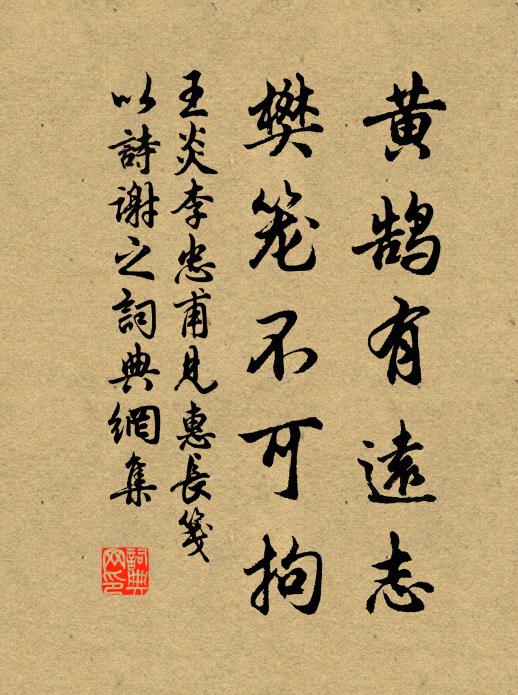 黄鹄有遠志
樊笼不可拘
王炎李忠甫見惠長箋
以詩謝之詞典網集
詞典网印